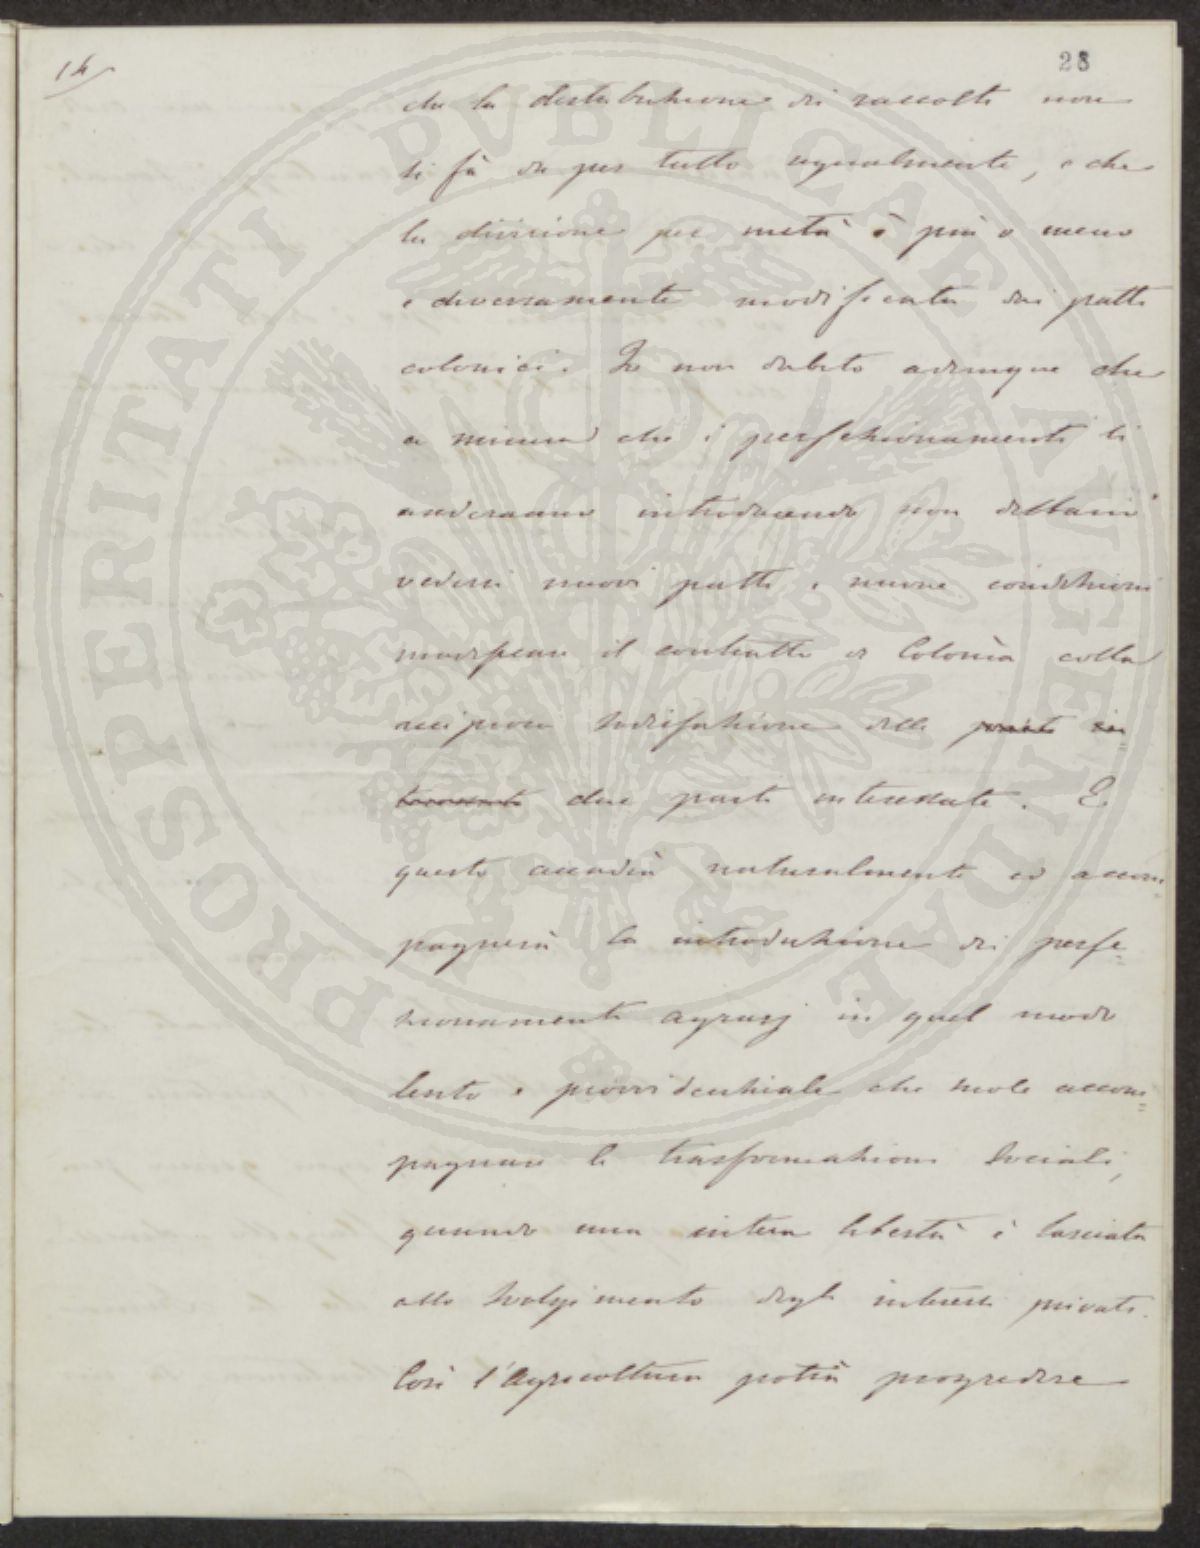 14/
28
che la distribuzione dei raccolti non
si fà da per tutto egualmente, e che
la divisione per metà è più o meno
e diversamente modificata dai patti
colonici. Io non dubito adunque che
a misura che i perfezionamenti si
anderanno introducendo non debbano
vedersi nuovi patti e nuove condizioni
modificare il contratto di Colonìa colla
reciproca sodisfazione delle
due parti interessate. E
questo accadrà naturalmente ed accom=
pagnerà la introduzione dei perfe=
zionamenti agrarj in quel modo
lento e provvidenziale che suole accom=
pagnare le trasformazioni sociali,
quando una intera libertà è lasciata
allo svolgimento degli interessi privati.
Così l'Agricoltura potrà progredire
PROSPERITATI PVBLICAE AVGENDAE